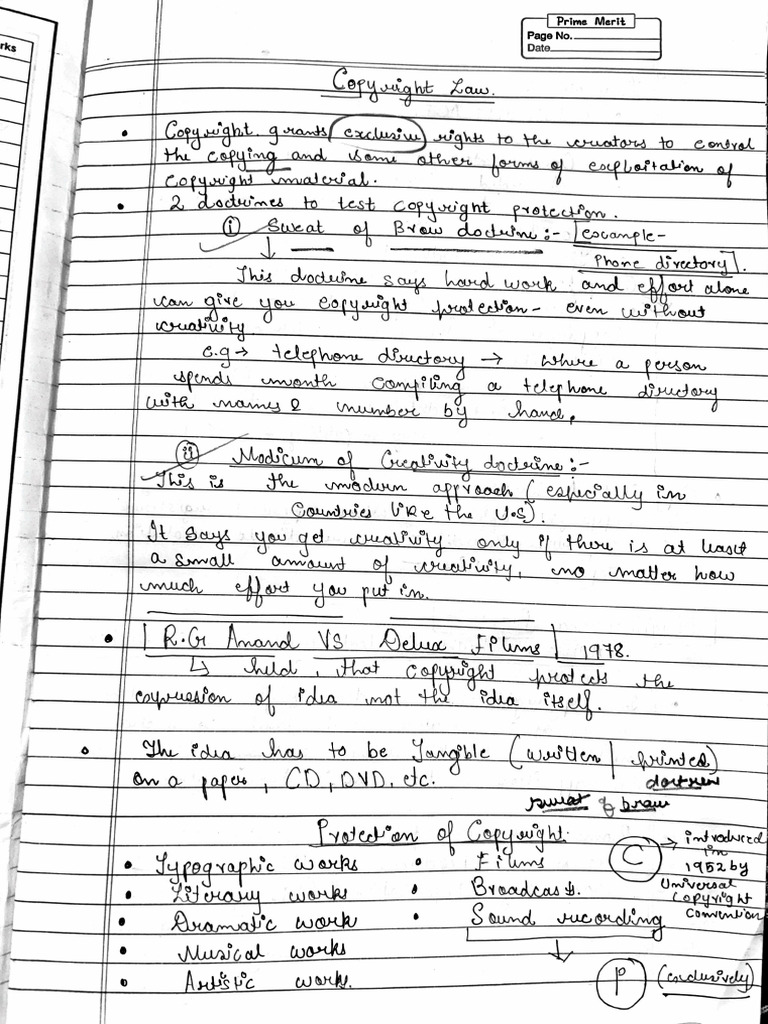 rks
Prime Merit
Page No.
Date
Copyright Law.
• Copyright grants exclusive rights to the creators to control
the copying and some other forms of exploitation of
copyright material.
• 2 doctrines to test copyright protection.
(i) Sweat of Brow doctrine:- [example-
Phone directory].
↓
This doctrine says hard work and effort alone
can give you copyright protection- even without
creativity
e.g → telephone directory → where a person
spends month compiling a telephone directory
with names & number by hand.
(ii) Modicum of Creativity doctrine:-
This is the modern approach (especially in
Countries like the U.S).
It says you get creativity only if there is at least
a small amount of creativity, no matter how
much effort you put in.
• | R.G Anand VS Delux Films | 1978.
↳ held, that copyright protects the
expression of idea not the idea itself.
• The idea has to be Tangible (written | printed)
on a paper, CD, DVD, etc.
sweat of brow
Protection of Copyright.
• Typographic works
• Literary works
• Dramatic work
• Musical works
• Artistic works.
• Films
• Broadcasts.
• Sound recording
↓
(P) (exclusively)
(C) → introduced
in
1952 by
Universal
Copyright
Convention